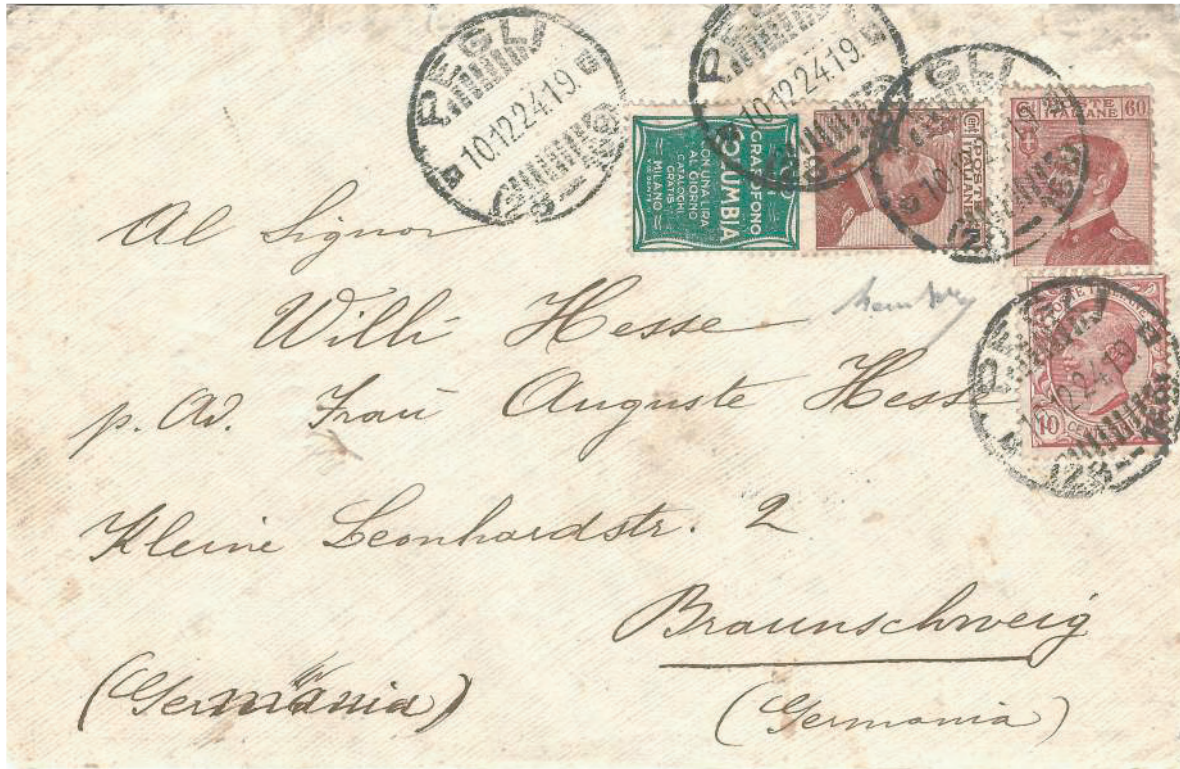 PEGLI
10.12.24.19.
PEGLI
10.12.24.19.
GLI
POSTE
ITALIANE
60
GRAFOFONO
COLUMBIA
CON UNA LIRA
AL GIORNO
CATALOGHI
GRATIS
MILANO
POSTE
ITALIANE
Cent
10
Al Signor
Willi Hesse
p. Ad. Frau Auguste Hesse
Kleine Leonhardstr. 2
Braunschweig
(Germania) (Germania)